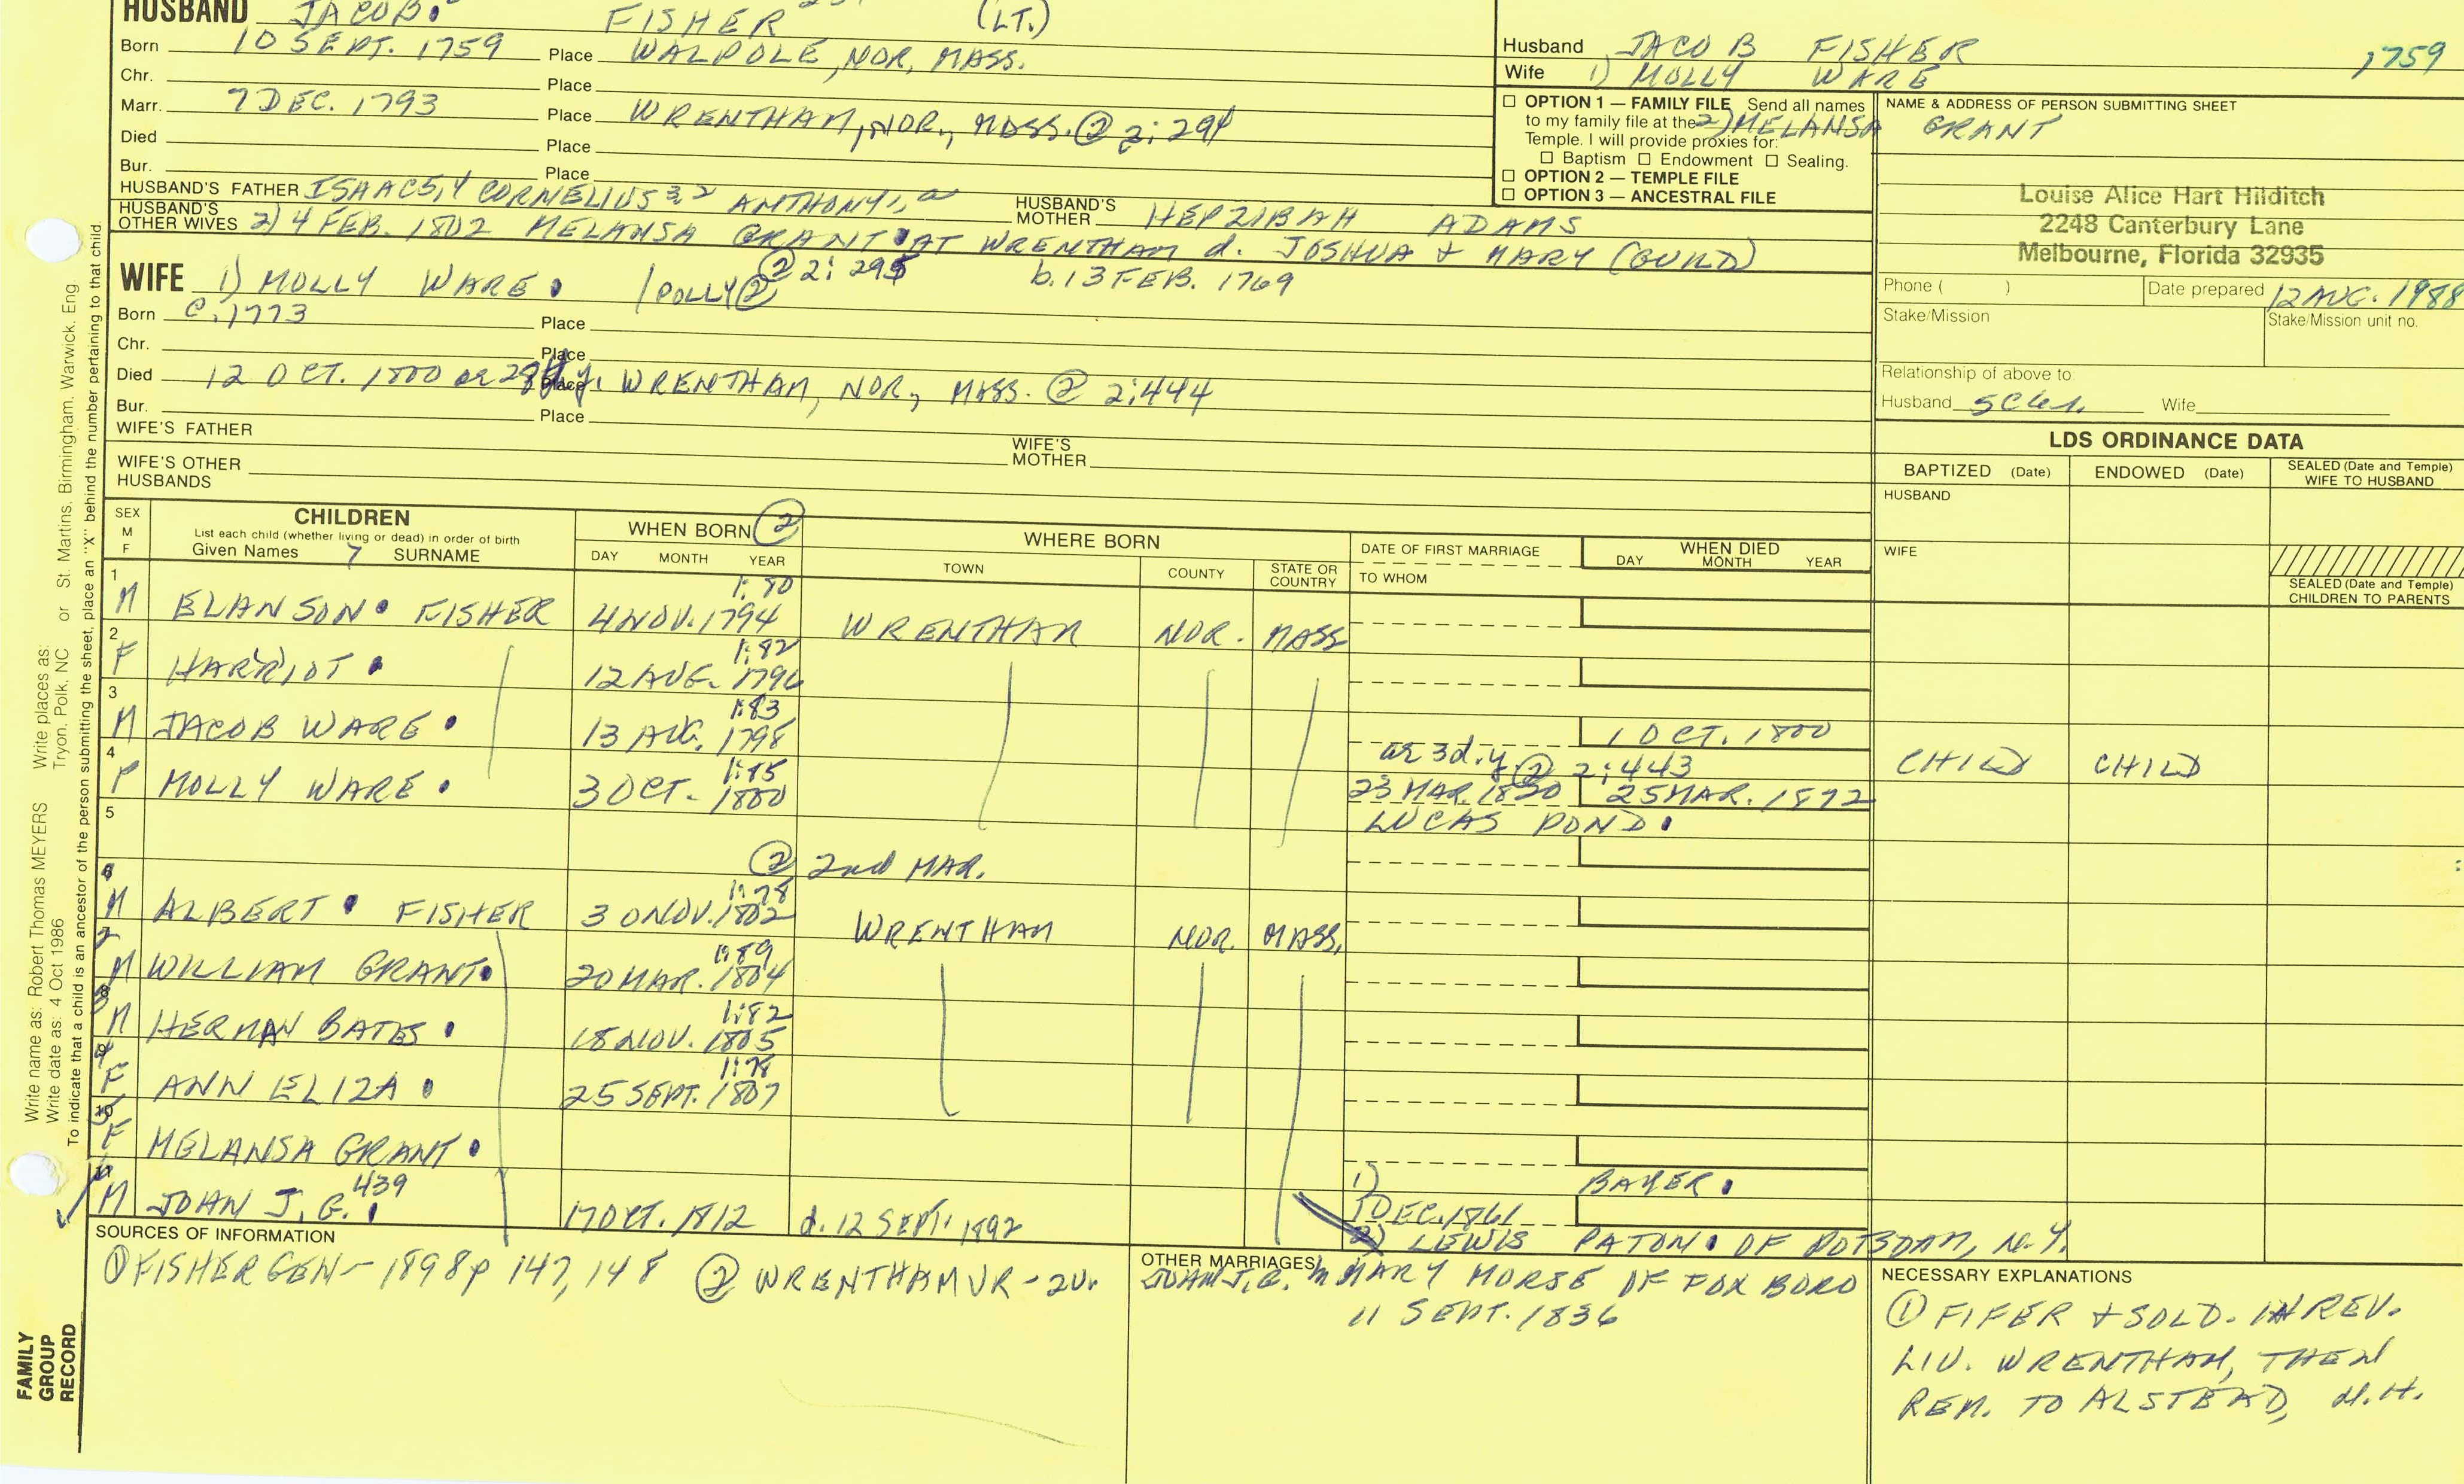 HUSBAND JACOB. FISHER (LT.)
Born 10 SEPT. 1759 Place WALPOLE, NOR, MASS.
Chr. Place
Marr. 7 DEC. 1793 Place WRENTHAM, NOR., MASS. @ 2:294
Died Place
Bur. Place
HUSBAND'S FATHER ISAAC5,4 CORNELIUS3,2 ANTHONY1,
HUSBAND'S MOTHER HEPZIBAH ADAMS
HUSBAND'S OTHER WIVES 2) 4 FEB. 1802 MELANSA GRANT AT WRENTHAM d. JOSHUA + MARY (GUILD)
② 2:295 b. 13 FEB. 1769
WIFE 1) MOLLY WARE. /POLLY②
Born C.1773 Place
Chr. Place
Died 12 OCT. 1800 ae 28 y. Place WRENTHAM, NOR., MASS. ② 2:444
Bur. Place
WIFE'S FATHER
WIFE'S MOTHER
WIFE'S OTHER HUSBANDS
Husband JACOB FISHER 1759
Wife 1) MOLLY WARE
2) MELANSA GRANT
☐ OPTION 1 — FAMILY FILE Send all names
to my family file at the
Temple. I will provide proxies for:
☐ Baptism ☐ Endowment ☐ Sealing.
☐ OPTION 2 — TEMPLE FILE
☐ OPTION 3 — ANCESTRAL FILE
NAME & ADDRESS OF PERSON SUBMITTING SHEET
Louise Alice Hart Hilditch
2248 Canterbury Lane
Melbourne, Florida 32935
Phone ( )
Date prepared 12 AUG. 1988
Stake/Mission
Stake/Mission unit no.
Relationship of above to:
Husband 5C6R. Wife
LDS ORDINANCE DATA
BAPTIZED (Date) ENDOWED (Date) SEALED (Date and Temple) WIFE TO HUSBAND
HUSBAND
WIFE
SEALED (Date and Temple) CHILDREN TO PARENTS
SEX M F
CHILDREN
List each child (whether living or dead) in order of birth
Given Names 7 SURNAME
WHEN BORN ②
DAY MONTH YEAR
WHERE BORN
TOWN COUNTY STATE OR COUNTRY
DATE OF FIRST MARRIAGE
TO WHOM
WHEN DIED
DAY MONTH YEAR
1 M ELANSON. FISHER 4 NOV. 1794 1:80 WRENTHAM NOR. MASS
2 F HARRIOT. 12 AUG. 1796 1:82
3 M JACOB WARE. 13 AUG. 1798 1:83 1 OCT. 1800
ae 3d. y ② 2:443 CHILD CHILD
4 F MOLLY WARE. 3 OCT. 1800 1:85 23 MAR. 1820 25 MAR. 1872
LUCAS POND.
5
② 2nd MAR.
6 M ALBERT. FISHER 30 NOV. 1802 1:78 WRENTHAM NOR. MASS.
7 M WILLIAM GRANT. 20 MAR. 1804 1:89
8 M HERMAN BATES. 18 NOV. 1805 1:82
9 F ANN ELIZA. 25 SEPT. 1807 1:78
10 F MELANSA GRANT.
1) BAKER.
M JOHN J. G. 439 17 OCT. 1812 d. 12 SEPT. 1892 1 DEC. 1861
2) LEWIS PATON. OF POTSDAM, N.Y.
SOURCES OF INFORMATION
① FISHER GEN- 1898 p 147, 148 ② WRENTHAM VR - 2V.
OTHER MARRIAGES
JOHN J. G. m MARY MORSE OF FOXBORO
11 SEPT. 1836
NECESSARY EXPLANATIONS
① FIFER + SOLD. IN REV.
LIV. WRENTHAM, THEN
REM. TO ALSTEAD, N.H.
Write name as: Robert Thomas MEYERS Write places as: Tryon, Polk, NC or St. Martins, Birmingham, Warwick, Eng
Write date as: 4 Oct 1986
To indicate that a child is an ancestor of the person submitting the sheet, place an "X" behind the number pertaining to that child.
FAMILY GROUP RECORD